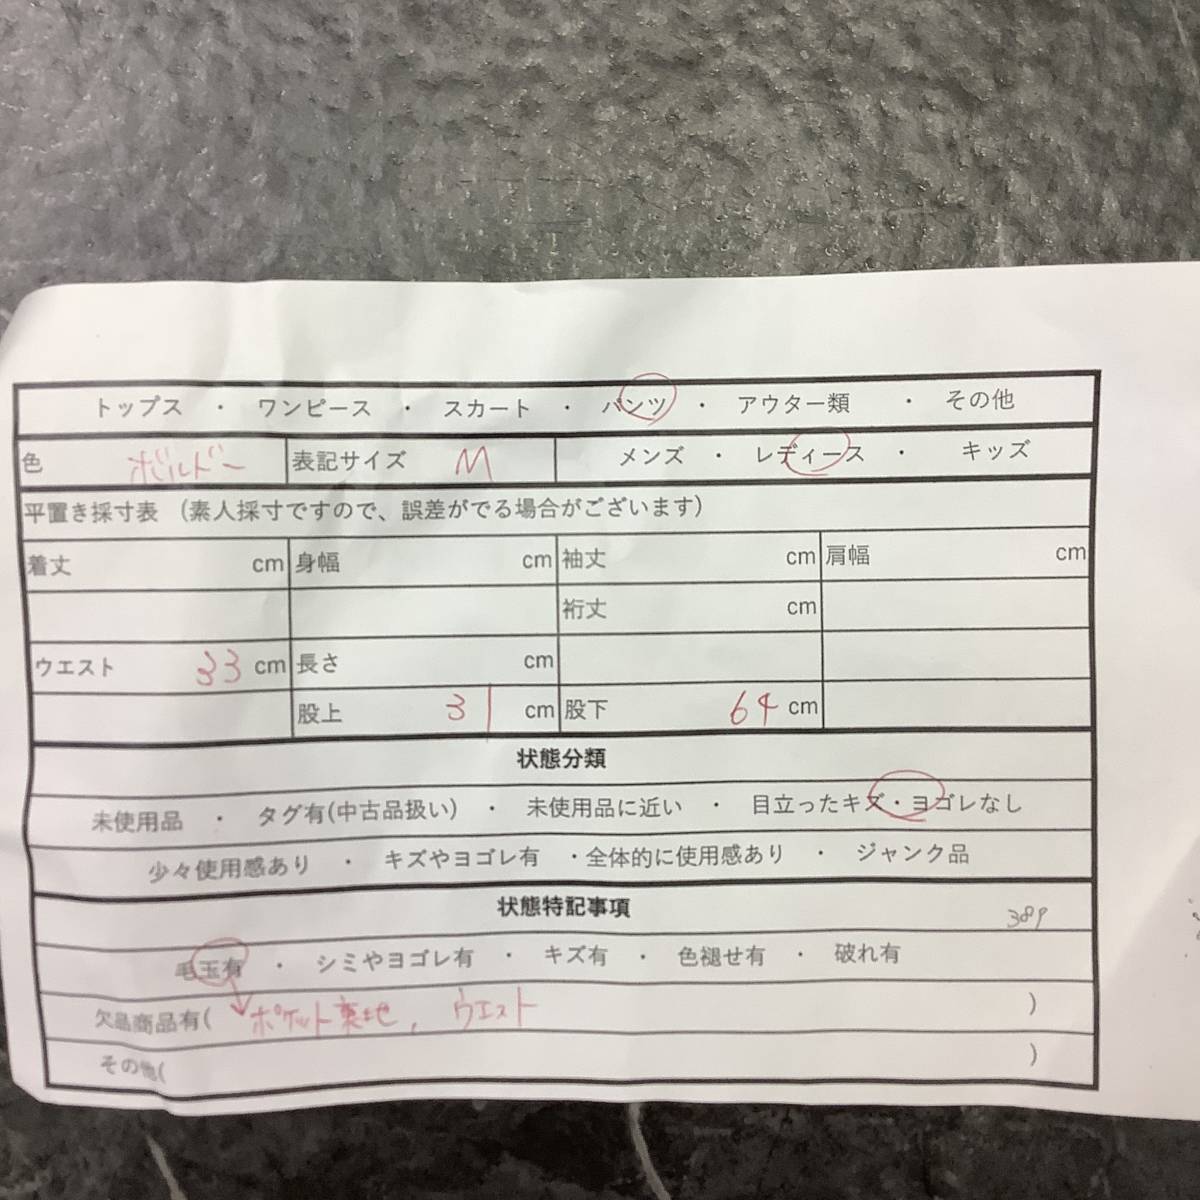 トップス ・ ワンピース ・ スカート ・ パンツ ・ アウター類 ・ その他
色 ボルドー 表記サイズ M メンズ ・ レディース ・ キッズ
平置き採寸表 (素人採寸ですので、誤差がでる場合がございます)
着丈 cm 身幅 cm 袖丈 cm 肩幅 cm
裄丈 cm
ウエスト 33 cm 長さ cm
股上 31 cm 股下 64 cm
状態分類
未使用品 ・ タグ有(中古品扱い) ・ 未使用品に近い ・ 目立ったキズ・ヨゴレなし
少々使用感あり ・ キズやヨゴレ有 ・全体的に使用感あり ・ ジャンク品
状態特記事項 389
毛玉有 ・ シミやヨゴレ有 ・ キズ有 ・ 色褪せ有 ・ 破れ有
欠品商品有( ポケット裏地, ウエスト )
その他( )